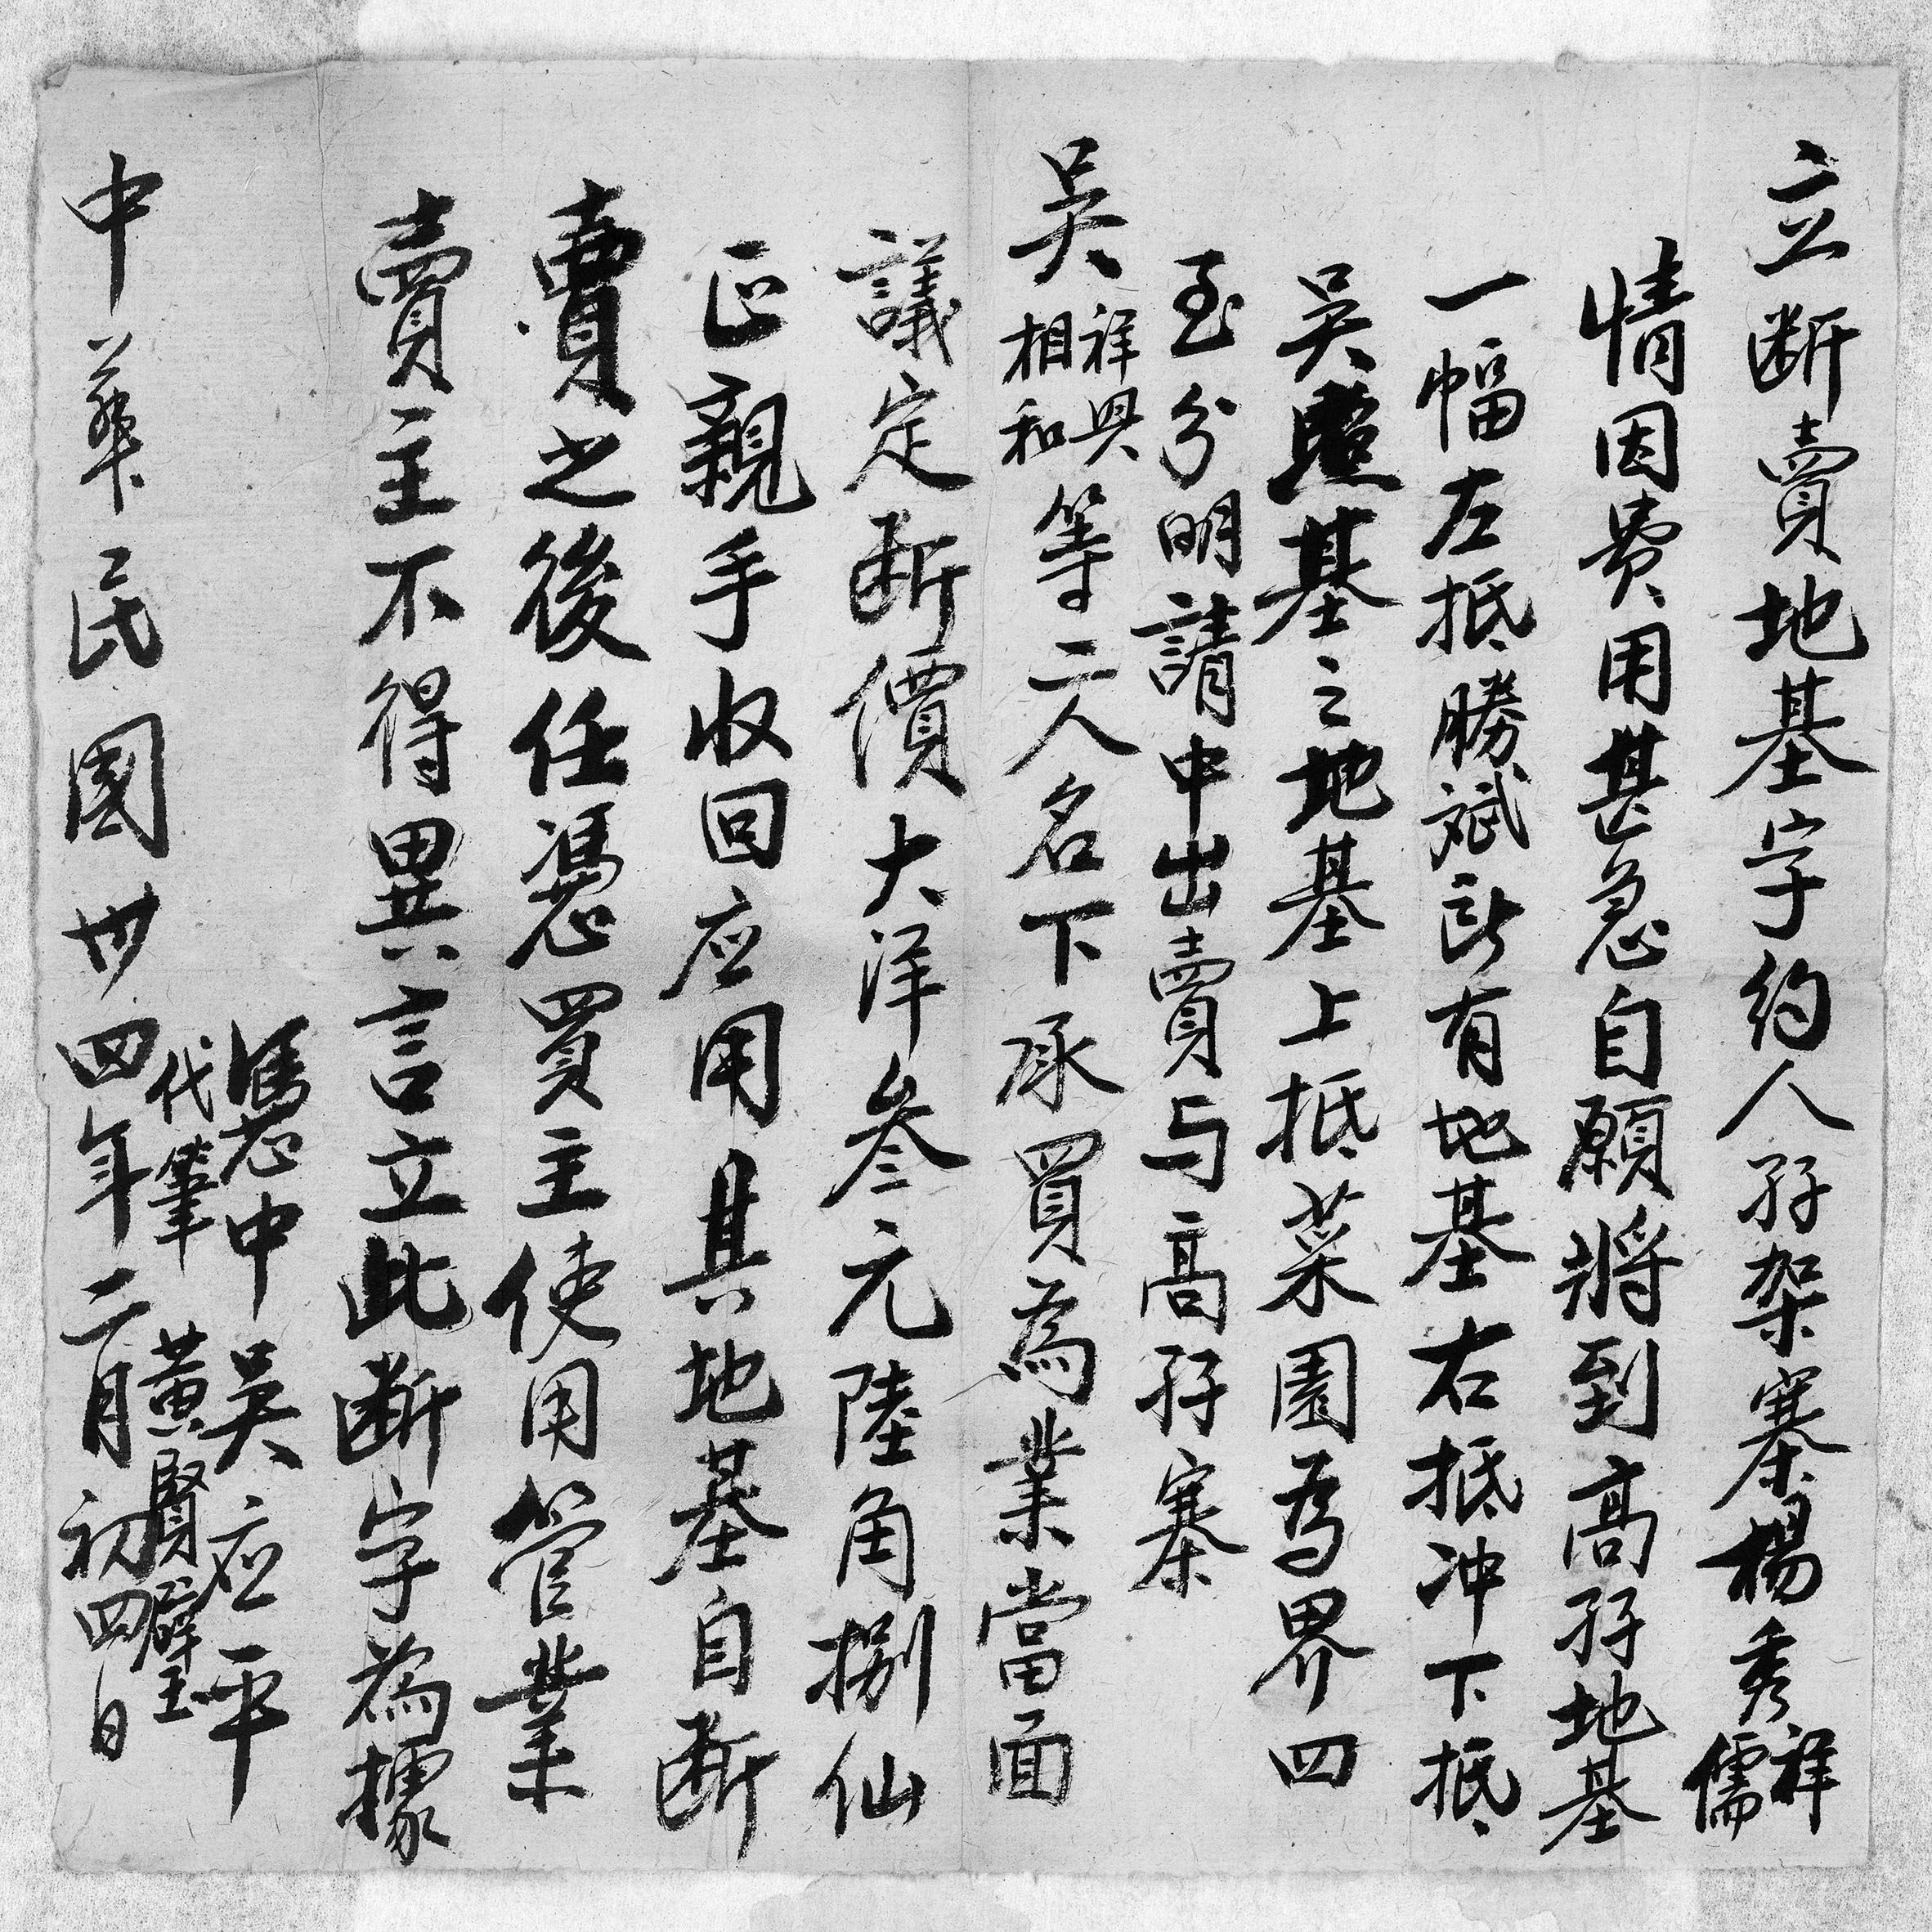 立断賣地基字約人孖架寨楊秀祥儒
情因費用甚急自願將到高孖地基
一幅左抵勝斌所有地基右抵冲下抵
吴照基之地基上抵菜園為界四
至分明請中出賣与高孖寨
吴祥興相和等二人名下承買為業當面
議定断價大洋叁元陸角捌仙
正親手收回应用其地基自断
賣之後任憑買主使用管業
賣主不得異言立此断字為據
憑中吴应平
代筆黄賢璧
中華民國卅四年二月初四日